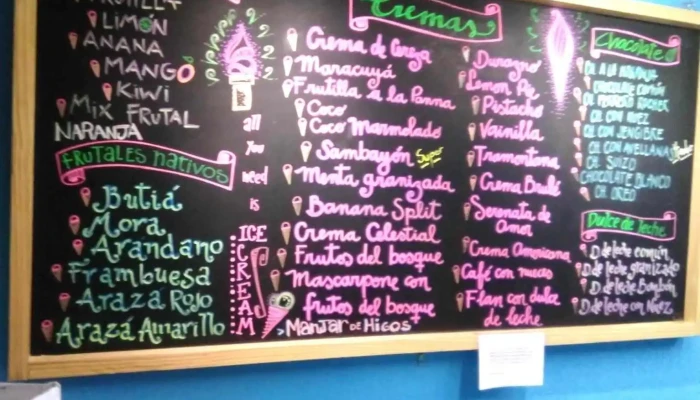 LIMÓN
ANANA
MANGO
KIWI
MIX FRUTAL
NARANJA
FRUTALES NATIVOS
Butiá
Mora
Arandano
Frambuesa
Arazá Rojo
Arazá Amarillo
all
You
need
is
ICE
CREAM
Cremas
Crema de Cereza
Maracuyá
Frutilla a la Panna
Coco
Coco Marmolado
Sambayón Super
Menta granizada
Banana Split
Crema Celestial
Frutos del bosque
Mascarpone con
frutos del bosque
>Manjar de Higos
Durazno
Lemon Pie
Pistacho
Vainilla
Tramontana
Crema Brulé
Serenata de
Amor
Crema Americana
Café con nueces
Flan con dulce
de leche
Chocolate
CH. A LA NARANJA
CHOCOLATE COMÚN
CH. FERRERO ROCHER
CH. CON NUEZ
CH. CON JENGIBRE
CH. CON AVELLANA
CH. SUIZO
CHOCOLATE BLANCO
CH. OREO
Dulce de leche
D de leche común
D de leche granizado
D de leche Bombón
D de leche con Nuez